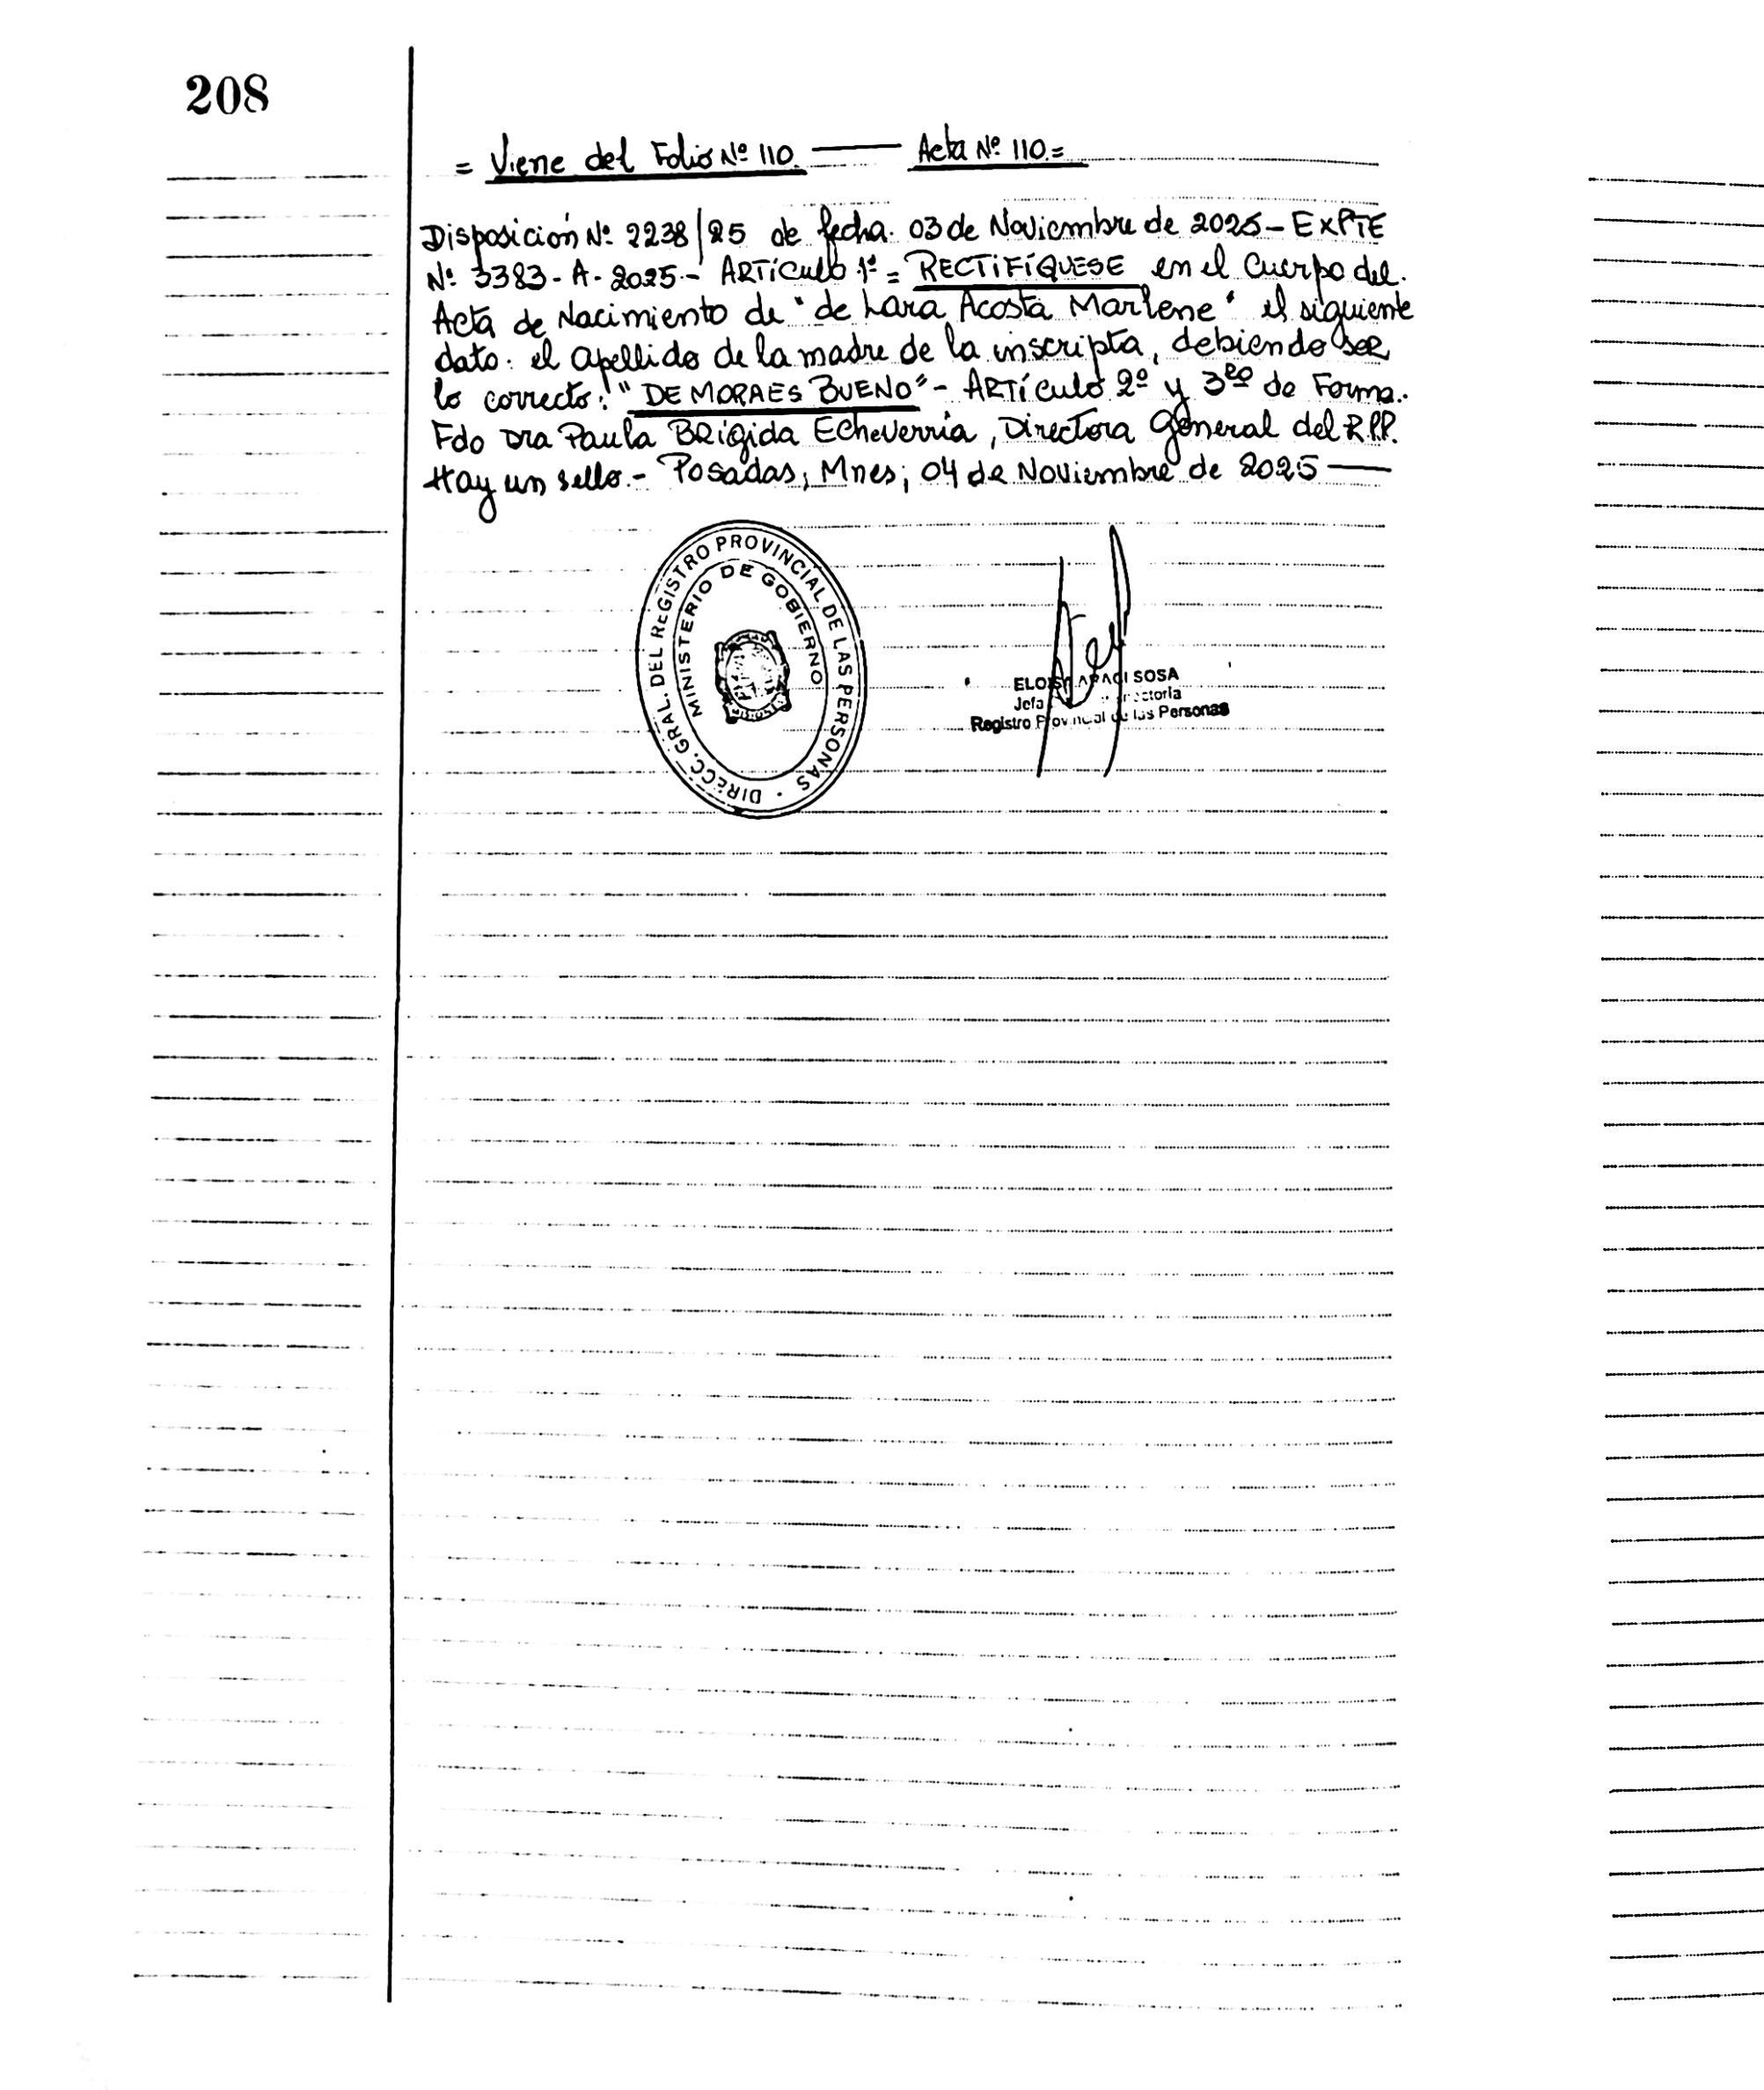 208
= Viene del Folio Nº 110. —— Acta Nº 110.=
Disposición Nº 2238/25 de fecha. 03 de Noviembre de 2025 - EXPTE
Nº 3383-A-2025.- ARTÍCULO 1º = RECTIFÍQUESE en el Cuerpo del.
Acta de Nacimiento de "de Lara Acosta Marlene" el siguiente
dato: el apellido de la madre de la inscripta, debiendo ser
lo correcto: "DE MORAES BUENO" - ARTículo 2º y 3ro de Forma.
Fdo Dra Paula BRígida EcheVerria, Directora General del R.P.P.
Hay un sello.- Posadas, Mnes; 04 de Noviembre de 2025 ——
DIRECC. GRAL. DEL REGISTRO PROVINCIAL DE LAS PERSONAS
MINISTERIO DE GOBIERNO
SOSA
Jefa
Registro Provincial de las Personas